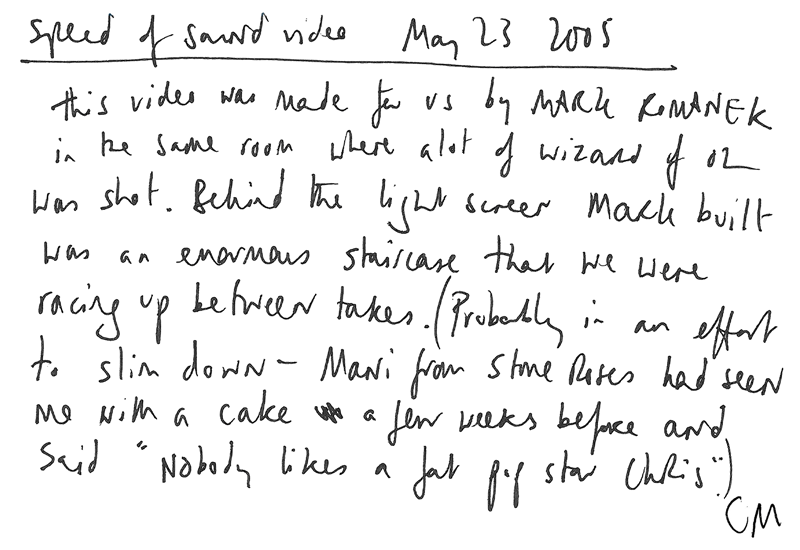 Speed of Sound video May 23 2005
this video was made for us by MARK ROMANEK
in the same room where alot of wizard of oz
was shot. Behind the light screen Mark built
was an enormous staircase that we were
racing up between takes. (Probably in an effort
to slim down - Mani from Stone Roses had seen
me with a cake a few weeks before and
said "Nobody likes a fat pop star Chris")
CM